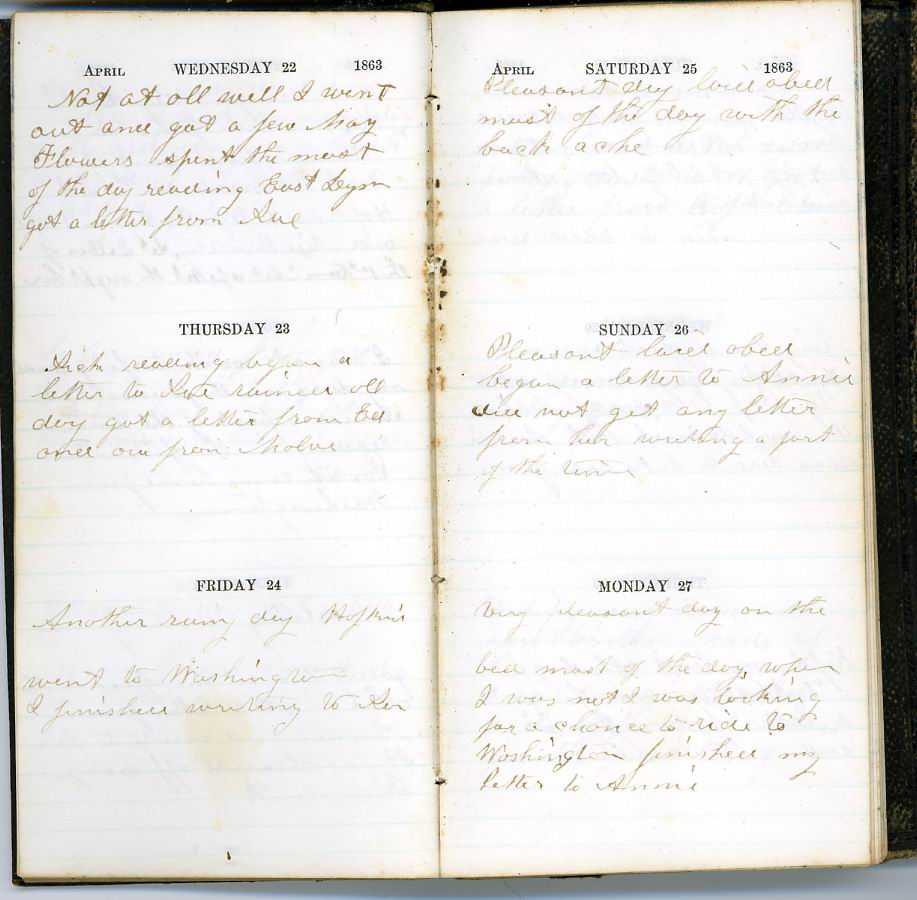 April WEDNESDAY 22 1863
Not at all well I went
out and got a few May
Flowers spent the most
of the day reading East Lynn
got a letter from Sue
THURSDAY 23
Sick reading began a
letter to Sue rained all
day got a letter from Ed
and one from
FRIDAY 24
Another rainy day Hopkins
went to Washington
I finished writing to
April SATURDAY 25 1863
Pleasant day laid abed
most of the day with the
back ache
SUNDAY 26
Pleasant laid abed
began a letter to Annie
did not get any letter
from her writing a part
of the time
MONDAY 27
Very pleasant day on the
bed most of the day, when
I was not I was looking
for a chance to ride to
Washington finished my
letter to Annie